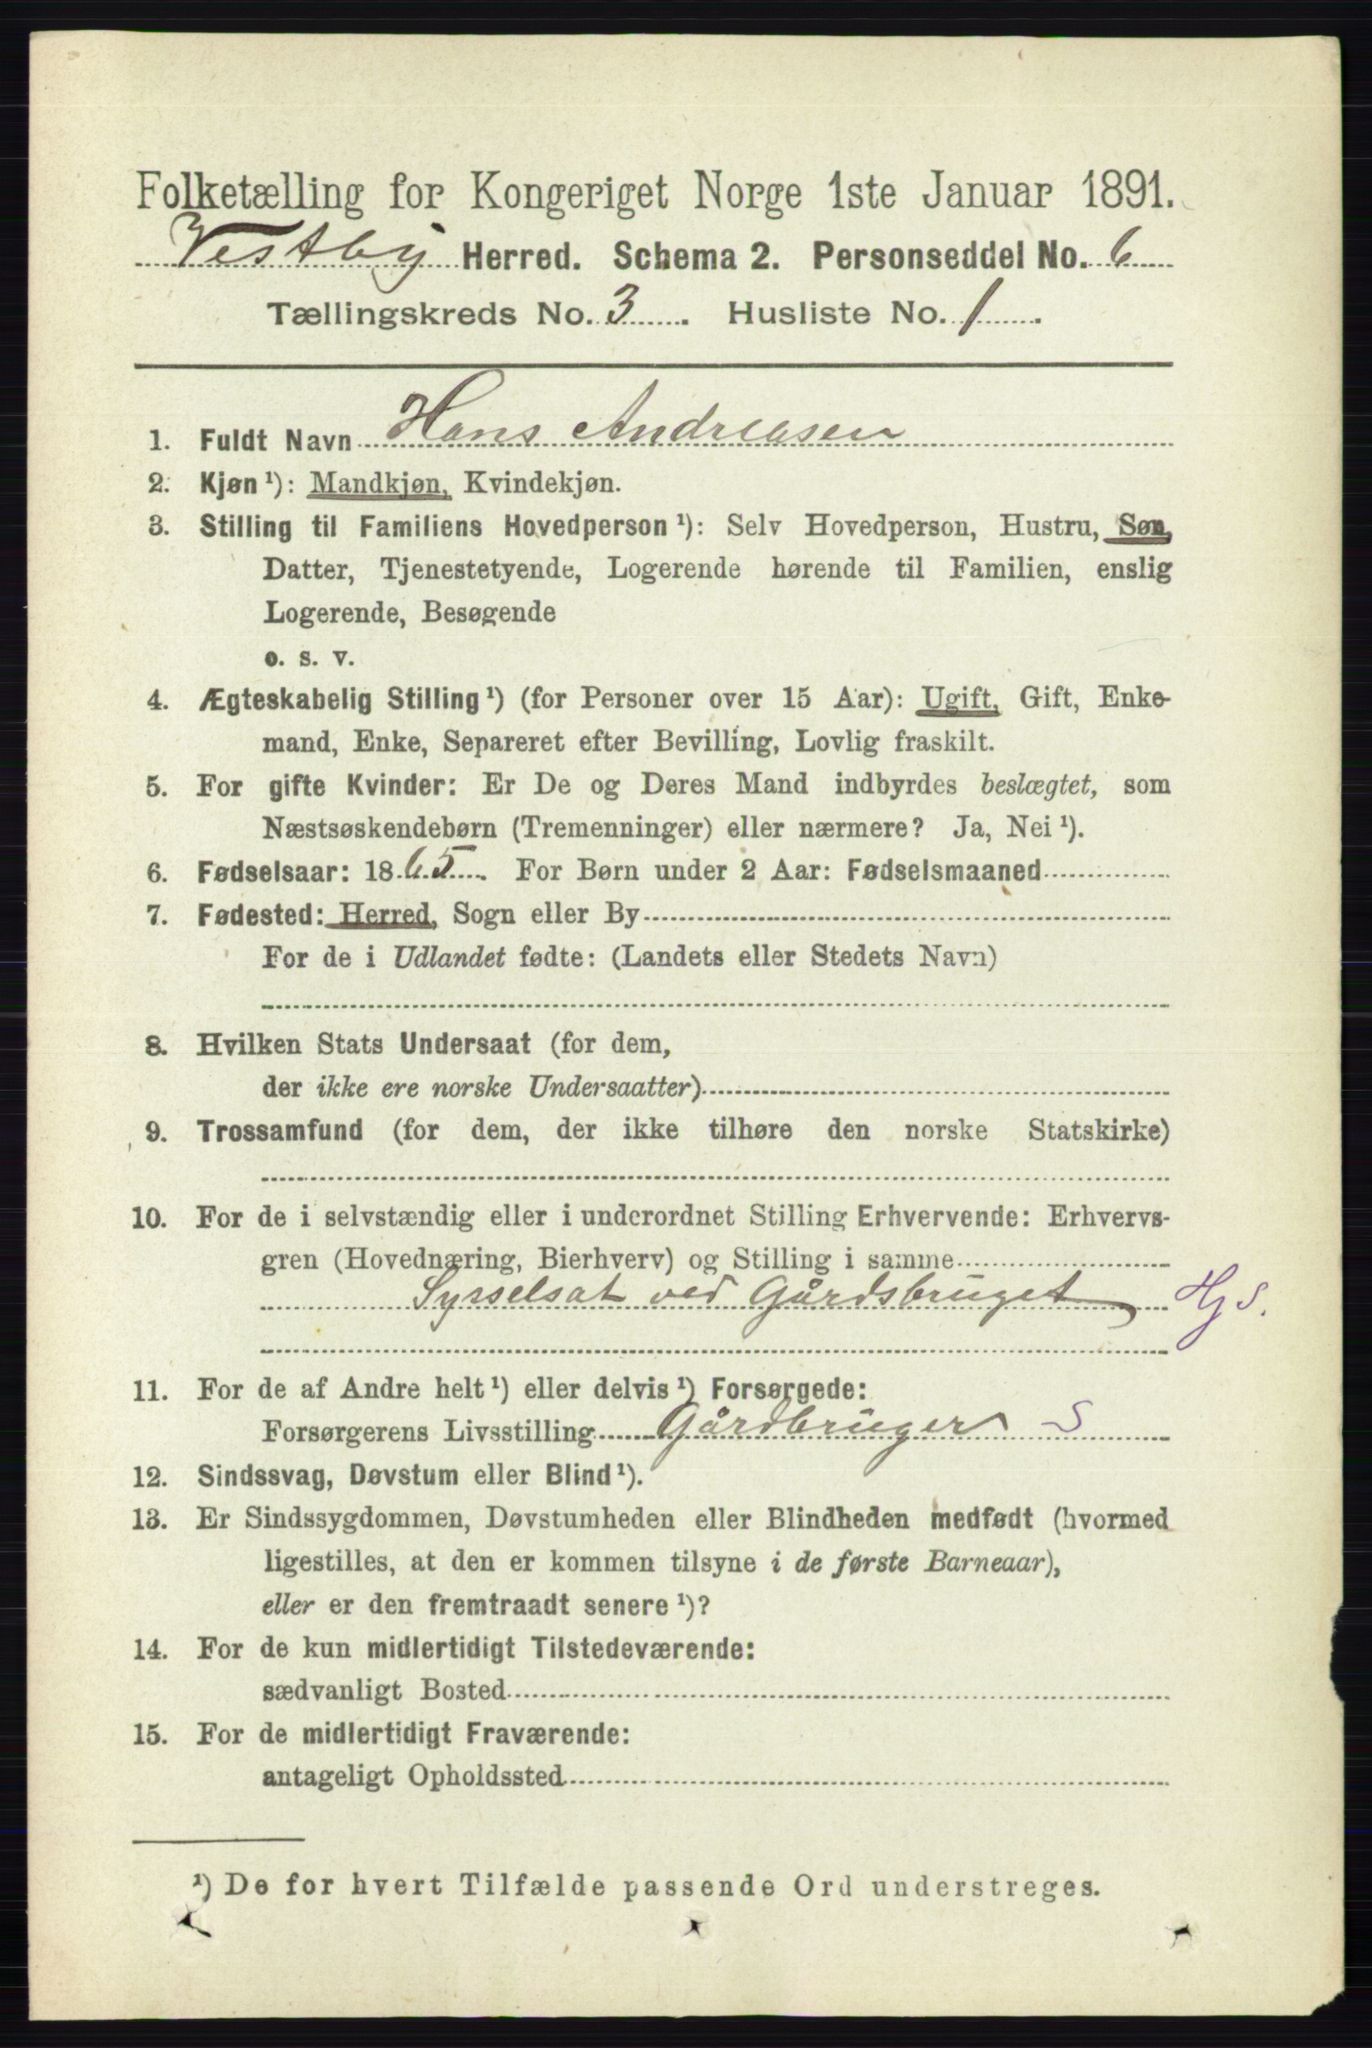 Folketælling for Kongeriget Norge 1ste Januar 1891.
Vestby Herred. Schema 2. Personseddel No. 6
Tællingskreds No. 3 . Husliste No. 1 .
1. Fuldt Navn Hans Andreasen
2. Kjøn ¹): Mandkjøn, Kvindekjøn.
3. Stilling til Familiens Hovedperson ¹): Selv Hovedperson, Hustru, Søn,
Datter, Tjenestetyende, Logerende hørende til Familien, enslig
Logerende, Besøgende
o. s. v.
4. Ægteskabelig Stilling ¹) (for Personer over 15 Aar): Ugift, Gift, Enke-
mand, Enke, Separeret efter Bevilling, Lovlig fraskilt.
5. For gifte Kvinder: Er De og Deres Mand indbyrdes beslægtet, som
Næstsøskendebørn (Tremenninger) eller nærmere? Ja, Nei ¹).
6. Fødselsaar: 1865. For Børn under 2 Aar: Fødselsmaaned
7. Fødested: Herred, Sogn eller By
For de i Udlandet fødte: (Landets eller Stedets Navn)
8. Hvilken Stats Undersaat (for dem,
der ikke ere norske Undersaatter)
9. Trossamfund (for dem, der ikke tilhøre den norske Statskirke)
10. For de i selvstændig eller i underordnet Stilling Erhvervende: Erhvervs-
gren (Hovednæring, Bierhverv) og Stilling i samme
Sysselsat ved Gårdsbruget HjS.
11. For de af Andre helt ¹) eller delvis ¹) Forsørgede:
Forsørgerens Livsstilling Gårdbruger S
12. Sindssvag, Døvstum eller Blind ¹).
13. Er Sindssygdommen, Døvstumheden eller Blindheden medfødt (hvormed
ligestilles, at den er kommen tilsyne i de første Barneaar),
eller er den fremtraadt senere ¹)?
14. For de kun midlertidigt Tilstedeværende:
sædvanligt Bosted
15. For de midlertidigt Fraværende:
antageligt Opholdssted
¹) De for hvert Tilfælde passende Ord understreges.